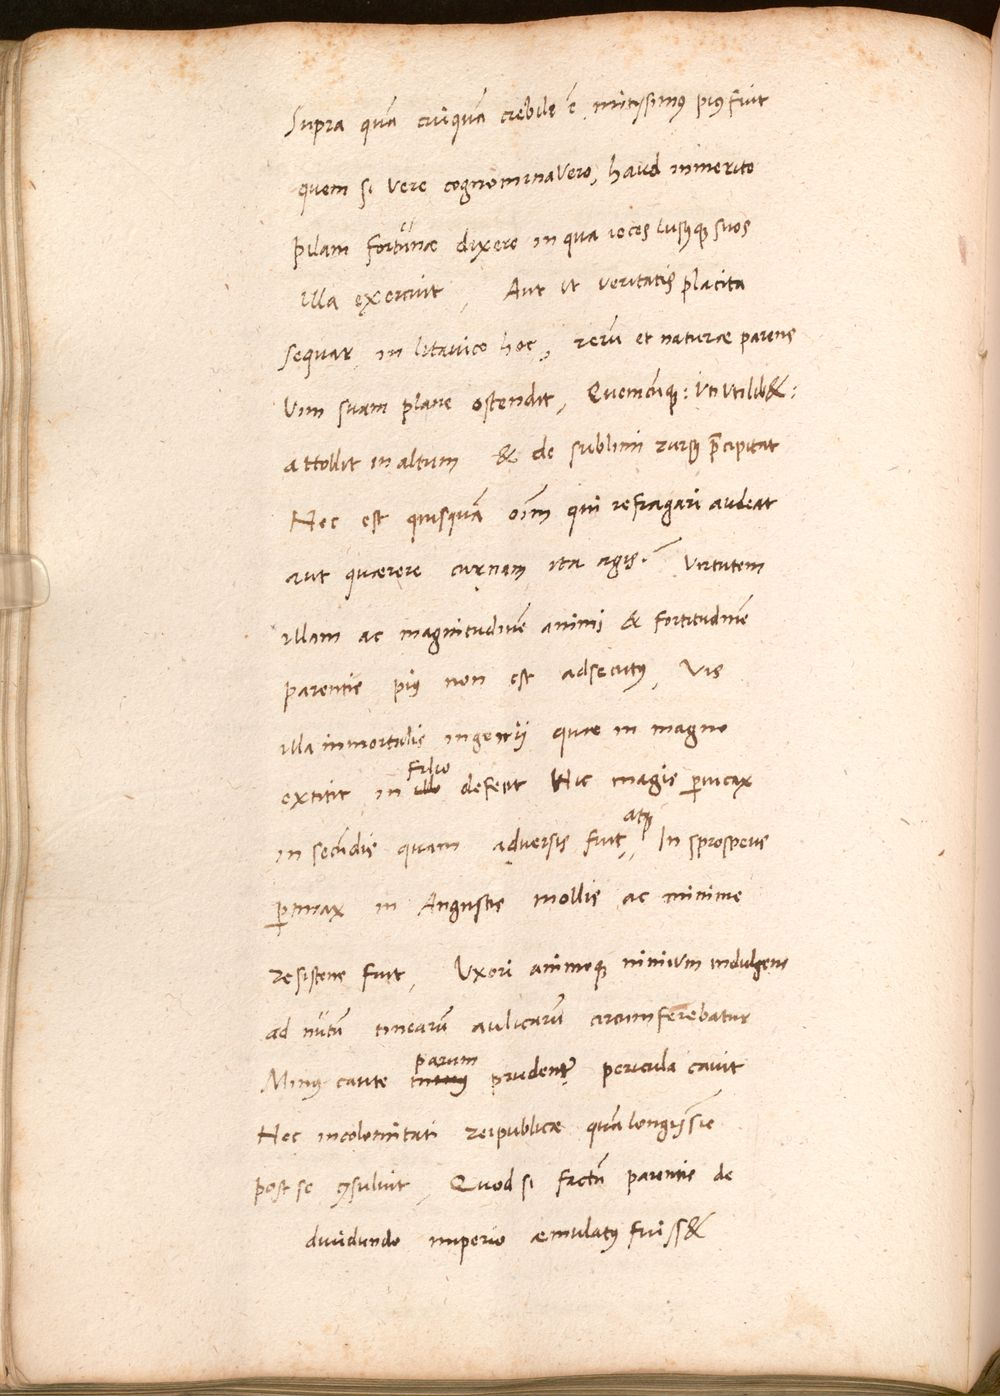 Supra quā cuiquā credibile ē, mitissimꝰ piꝰ fuit
quem si vere cognominavero, haud inmerito
pilam fortunæ dixero in qua iocos lusꝰqꝫ suos
illa exercuit, Aut ut veritatis placita
sequar in litavico hoc, rerū et naturæ parens
Vim suam plane ostendit, Quemcūqꝫ: uti utilib&:
attollit in altum & de sublimi rursꝰ p̄cipitat
Nec est quisquā oīm qui refragari audeat
aut quærere curnam ita agis? Virtutem
illam ac magnitudinē animi & fortitudinē
parentis piꝰ non est adsecutꝰ, Vis
illa inmortalis ingenii quæ in magno
extitit in illo filio defecit Hic magis ꝑuicax
in secūdis quam adversis fuit, atqꝫ In prosperis
ꝑtinax in Angustis mollis ac minime
resistens fuit, Uxori animoqꝫ nimium indulgens
ad nūtū tinearū aulicarū circumferebatur
Minꝰ caute minꝰ parum prudenter pericula cavit
Nec incolomitati reipublicæ quā longissīe
post se ꝯsuluit, Quod si factū parentis de
dividundo imperio æmulatꝰ fuiss&